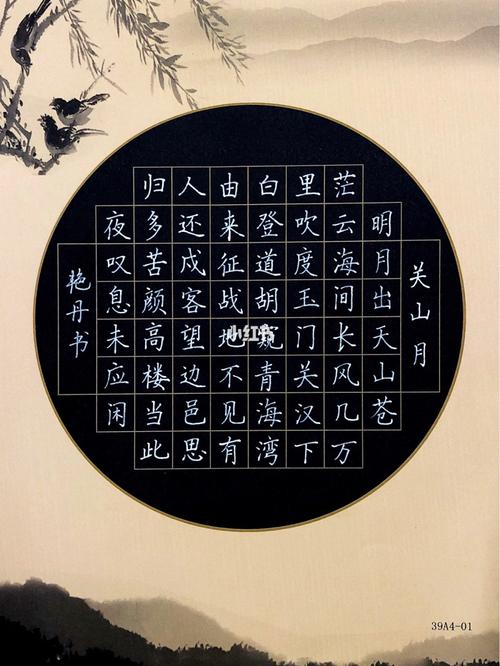 关山月
明月出天山苍
茫云海间长风几万
里吹度玉门关汉下
白登道胡窥青海湾
由来征战地不见有
人还戍客望边邑思
归多苦颜高楼当此
夜叹息未应闲
艳丹书
小红书
39A4-01